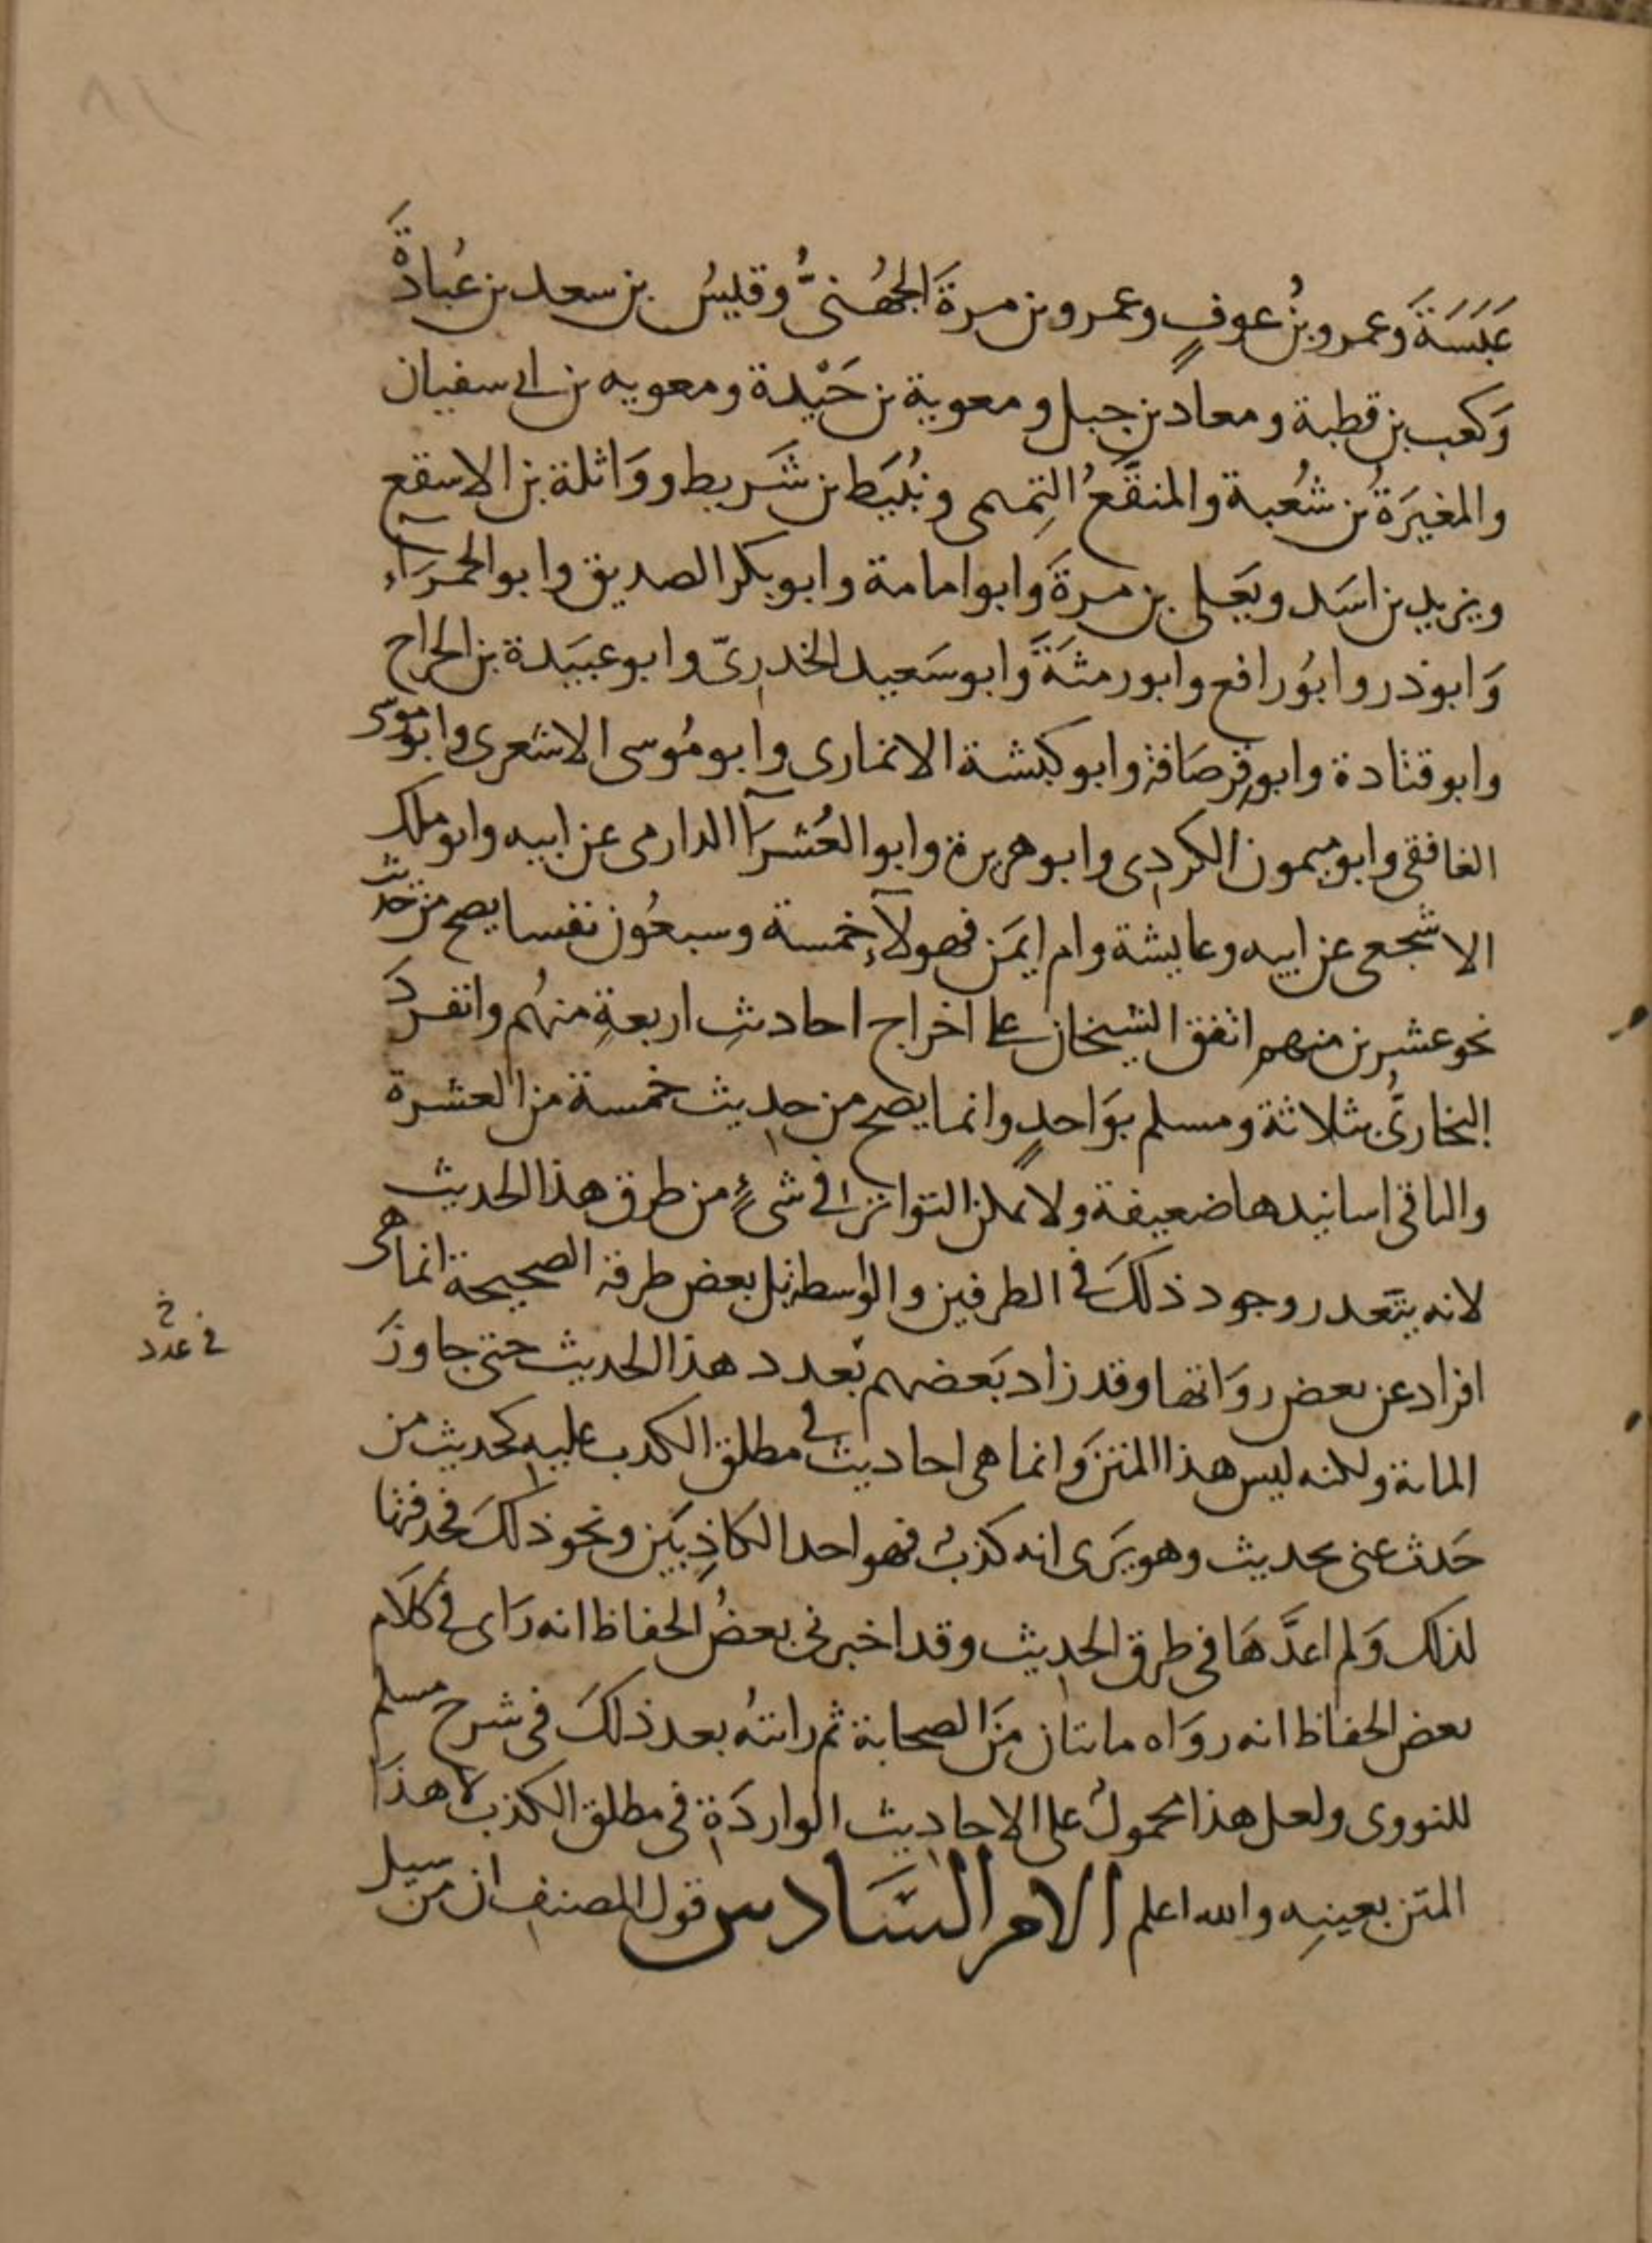 عَبَسَةَ وعمرو بنُ عوفٍ وعمرو بن مرةَ الجُهُنىُّ وقيسُ بن سعد بن عُبادةَ
وَكعب بن قطبة ومعاذ بن جبل ومعوية بن حَيْدة ومعويه بن ابى سفيان
والمغيَرةُ بن شُعبة والمنقَّعُ التِميمى ونُبَيَط بن شَريط ووَاثلة بن الاسقع
ويزيد بن اسَد ويَعلى بن مرةَ وابوامامة وابوبكر الصديق وابوالحمرَآءِ
وَابوذر وابوُرافع وابورمثَةَ وابوسَعيد الخدرىّ وابوعبيَدة بن الجراح
وابوقتادة وابوقِرصَافة وابوكبشة الانمارى وابومُوسى الاشعرى وابوموسى
الغافقى وابوميمون الكردى وابوهريرة وابوالعُشرَآ الدارمى عن ابيه وابوملك
الاشجعى عن ابيه وعايشة وام ايمَن فهولآءِ خمسة وسبعُون نفسا يصح من حديث
نحو عشرين منهم اتفق الشيخان على اخراج احاديثِ اربعةٍ منهُم وانفردَ
البخارىُّ بثلاثة ومسلم بوَاحدٍ وانما يصح من حديث خمسة من العشرة
والباقى اسانيدها ضعيفة ولا يمكن التواتر فى شىءٍ من طرق هذا الحديث
لانه يتَعدر وجود ذلكَ فى الطرفين والوسط بل بعض طرقه الصحيحة انما هى
افراد عن بعض روَاتها وقد زاد بَعضهم بعدد هذا الحديث حتى جاوزَ
فى عدد خ
المائة ولكنه ليس هذا المتن وَانما هى احاديث فى مطلق الكذب عليه كحديث من
حَدث عنى بحديث وهو يَرى انه كذبٌ فهو احد الكاذِبَين ونحو ذلكَ فحذفتها
لذلك وَلم اعدَّهَا فى طرق الحديث وقد اخبرنى بعضُ الحفاظ انه رَاى فى كلَام
بعض الحفاظ انه روَاه مائتان مَن الصحابة ثم رايتهُ بعد ذلكَ فى شرح مسلم
للنووى ولعل هذا محمولٌ على الاحاديث الواردَة فى مطلق الكذب لا هذَا
المتن بعينِه والله اعلم الامر السَّادس قول المصنف ان من سبيل